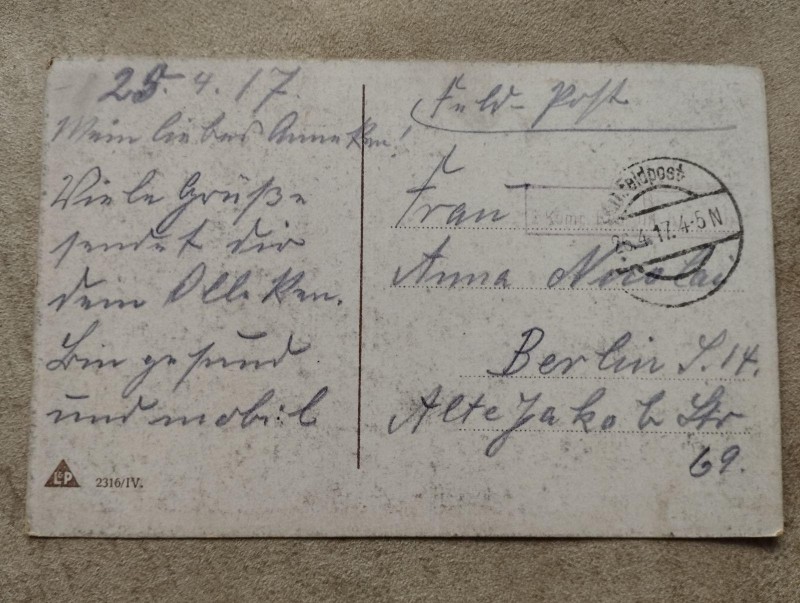 25.4.17.
Mein liebes Anneken!
Viele Grüße
sendet dir
dein Olleken.
Bin gesund
und mobil
L&P 2316/IV.
Feld-Post
Frau
Anna Nicolai
Berlin S. 14.
Alte Jakob Str
69.
Feldpost
26.4.17. 4-5 N